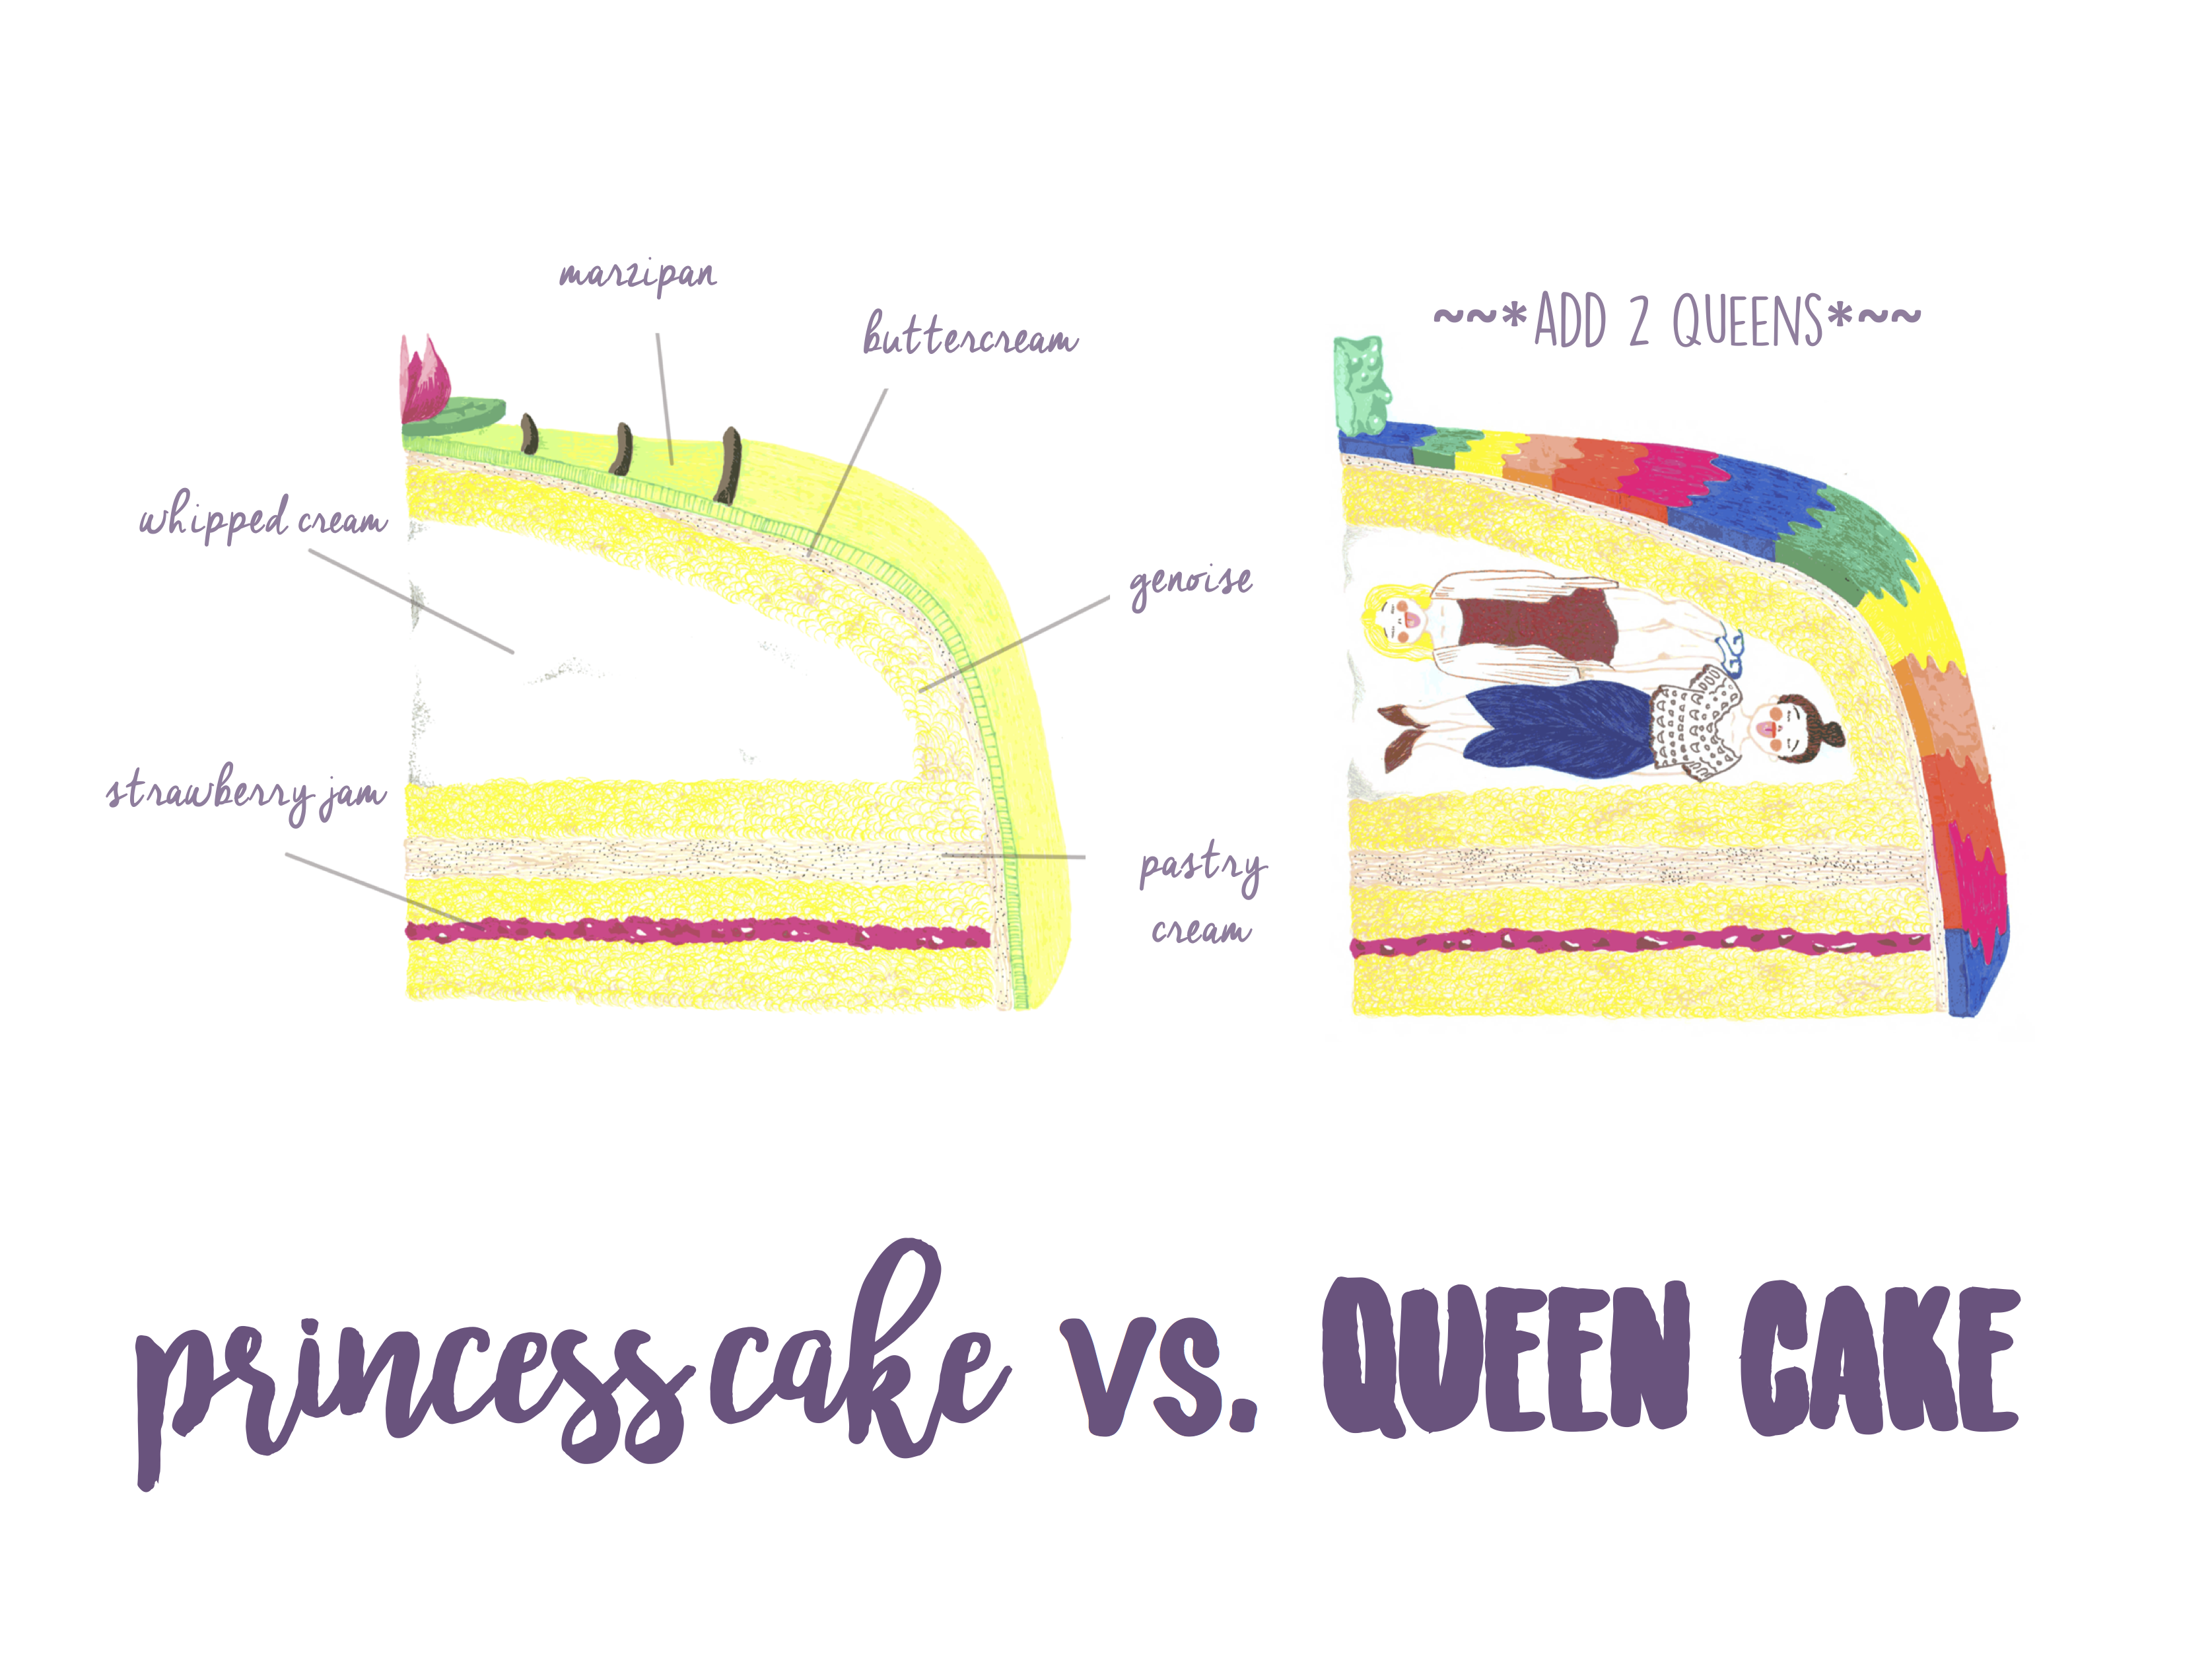 marzipan
buttercream
~~*ADD 2 QUEENS*~~
whipped cream
genoise
strawberry jam
pastry
cream
princess cake vs. QUEEN CAKE